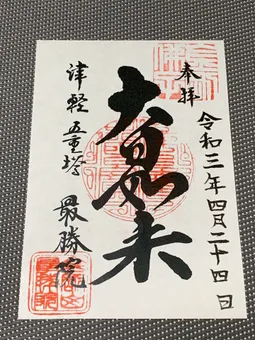 奉拝
令和三年四月二十四日
大日如来
津軽 五重塔
最勝院